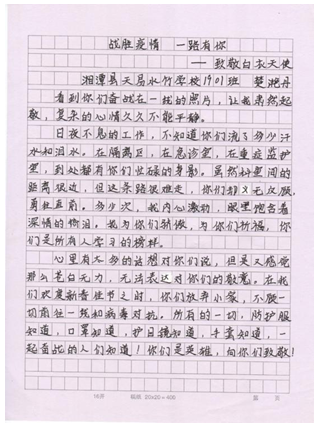 战胜疫情 一路有你
——致敬白衣天使
湘潭县天易水竹学校1901班 楚湘丹
看到你们奋战在一线的照片，让我肃然起
敬，复杂的心情久久不能平静。
日夜不息的工作，不知道你们流了多少汗
水和泪水。在隔离区，在急诊室，在重症监护
室，到处都有你们忙碌的身影。虽然病房间的
距离很近，但这条路很难走，你们却义无反顾，
勇往直前。多少次，我内心激动，眼里饱含着
深情的热泪。我为你们骄傲，为你们祈福，你
们是所有人学习的榜样。
心里有不多的话想对你们说，但是又感觉
那么苍白无力，无法表达对你们的敬意。在我
们欢度新春佳节之时，你们放弃小家，不顾一
切奔往一线和病毒对抗。所有的一切，防护服
知道，口罩知道，护目镜知道，手套知道，一
起奋战的人们知道！你们是英雄，向你们致敬！
16开 稿纸 20×20=400 第 页